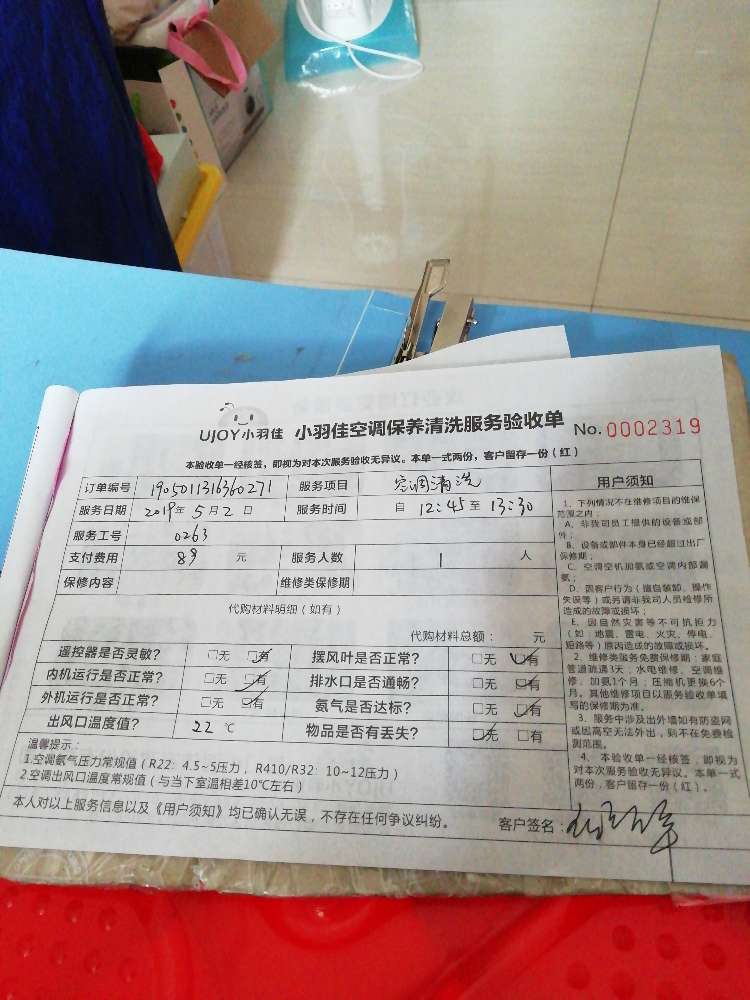 UJOY小羽佳 小羽佳空调保养清洗服务验收单 No. 0002319
本验收单一经核签，即视为对本次服务验收无异议。本单一式两份，客户留存一份（红）
订单编号 1905011316360271 服务项目 空调清洗
服务日期 2019年5月2日 服务时间 自 12:45 至 13:30
服务工号 0263
支付费用 89 元 服务人数 1 人
保修内容 维修类保修期
代购材料明细（如有）
代购材料总额： 元
遥控器是否灵敏？ □无 □有 摆风叶是否正常？ □无 □有
内机运行是否正常？ □无 □有 排水口是否通畅？ □无 □有
外机运行是否正常？ □无 □有 氨气是否达标？ □无 □有
出风口温度值？ 22 ℃ 物品是否有丢失？ □无 □有
温馨提示：
1.空调氨气压力常规值（R22：4.5~5压力，R410/R32：10~12压力）
2.空调出风口温度常规值（与当下室温相差10℃左右）
本人对以上服务信息以及《用户须知》均已确认无误，不存在任何争议纠纷。 客户签名：
用户须知
1、下列情况不在维修项目的维保
范围之内：
A、非我司员工提供的设备或部
件；
B、设备或部件本身已经超过出厂
保修期；
C、空调空机加氨或空调内部漏
氨；
D、因客户行为（擅自装卸、操作
失误等）或另请非我司人员检修所
造成的故障或损坏；
E、因自然灾害等不可抗拒力
（如：地震、雷电、火灾、停电、
短路等）原因造成的故障或损坏。
2、维修类服务免费保修期：家庭
管道疏通3天；水电维修、空调维
修、加氨1个月；压缩机更换6个
月。其他维修项目以服务验收单填
写的保修期为准。
3、服务中涉及出外墙如有防盗网
或因高空无法外出，则不在免费检
测范围。
4、本验收单一经核签，即视为
对本次服务验收无异议。本单一式
两份，客户留存一份（红）。